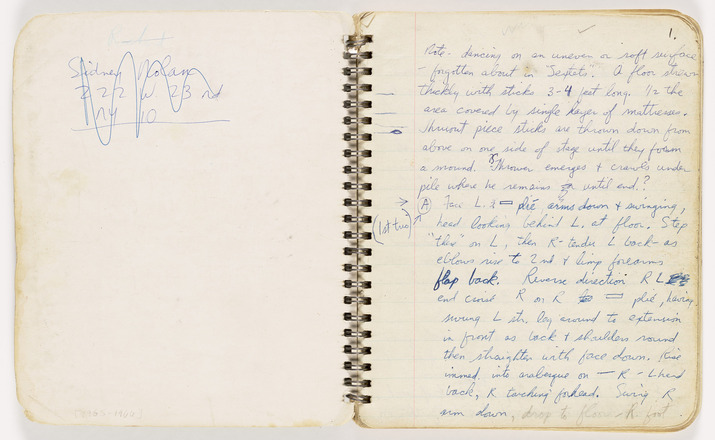 Sidney Nolan
222 W 23rd
NY 10
[1965-1966]
1.
Note - dancing on an uneven or soft surface
- forgotten about in "Sextets". A floor strewn
thickly with sticks 3-4 feet long. 1/2 the
area covered by single layer of mattresses.
Thruout piece sticks are thrown down from
above on one side of stage until they form
a mound. Thrower emerges & crawls under
pile where he remains until end.?
(1st two)
A Face L. plié arms down & swinging,
head looking behind L. at floor. Step
"thru" on L, then R - tendu L back - as
elbows rise to 2nd & limp forearms
flap back. Reverse direction R L
end R on R plié, having
swung L str. leg around to extension
in front as back & shoulders round
then straighten with face down. Rise
immed. into arabesque on - R - L hand
back, R touching forehead. Swing R
arm down, drop to floor - R foot